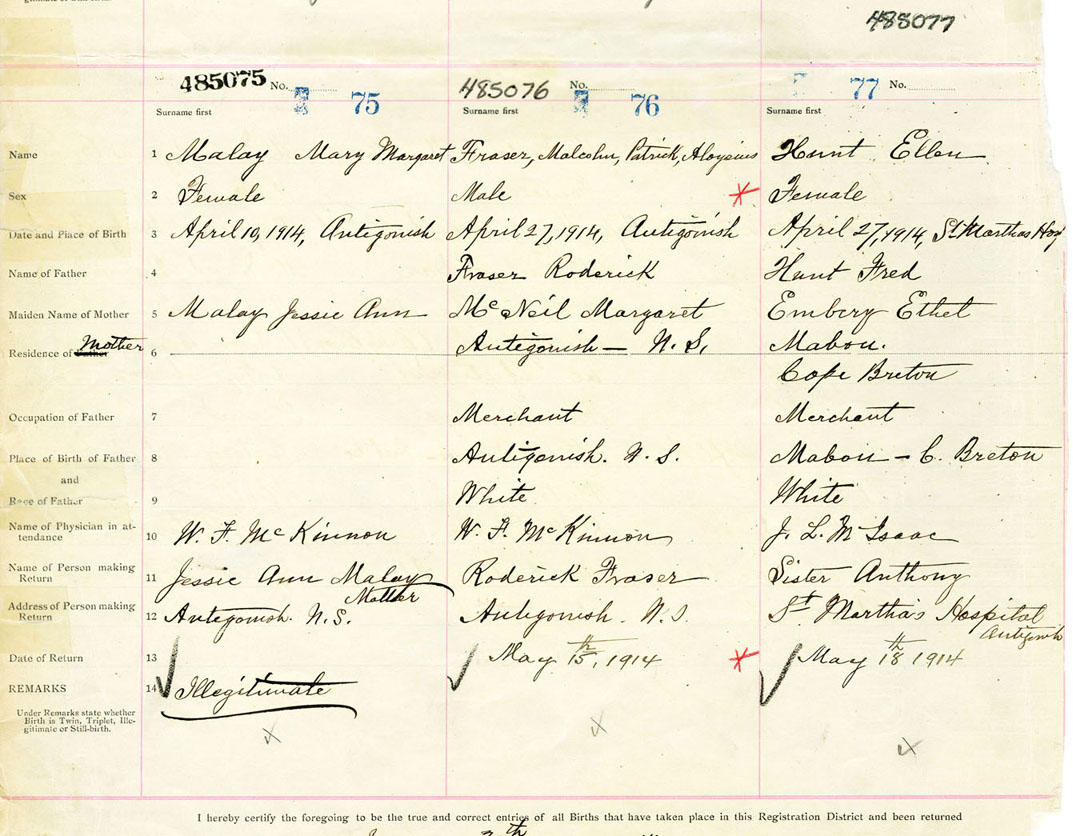 485077
485075 No. 75 485076 No. 76 77 No.
Surname first Surname first Surname first
Name 1 Malay Mary Margaret Fraser, Malcolm, Patrick, Aloysius Hunt Ellen
Sex 2 Female Male Female
Date and Place of Birth 3 April 10, 1914, Antigonish April 27, 1914, Antigonish April 27, 1914, St Marthas Hos
Name of Father 4 Fraser Roderick Hunt Fred
Maiden Name of Mother 5 Malay Jessie Ann McNeil Margaret Embery Ethel
Residence of Father Mother 6 Antigonish — N.S. Mabou.
Cape Breton
Occupation of Father 7 Merchant Merchant
Place of Birth of Father 8 Antigonish. N.S. Mabou — C. Breton
and
Race of Father 9 White White
Name of Physician in at-
tendance 10 W. F. McKinnon W. F. McKinnon J. L. McIsaac
Name of Person making
Return 11 Jessie Ann Malay Roderick Fraser Sister Anthony
Mother
Address of Person making
Return 12 Antigonish. N.S. Antigonish. N.S. St. Martha's Hospital
Antigonish
Date of Return 13 May 15th, 1914 May 18th 1914
REMARKS 14 Illegitimate
Under Remarks state whether
Birth is Twin, Triplet, Ille-
gitimate or Still-birth.
I hereby certify the foregoing to be the true and correct entries of all Births that have taken place in this Registration District and been returned